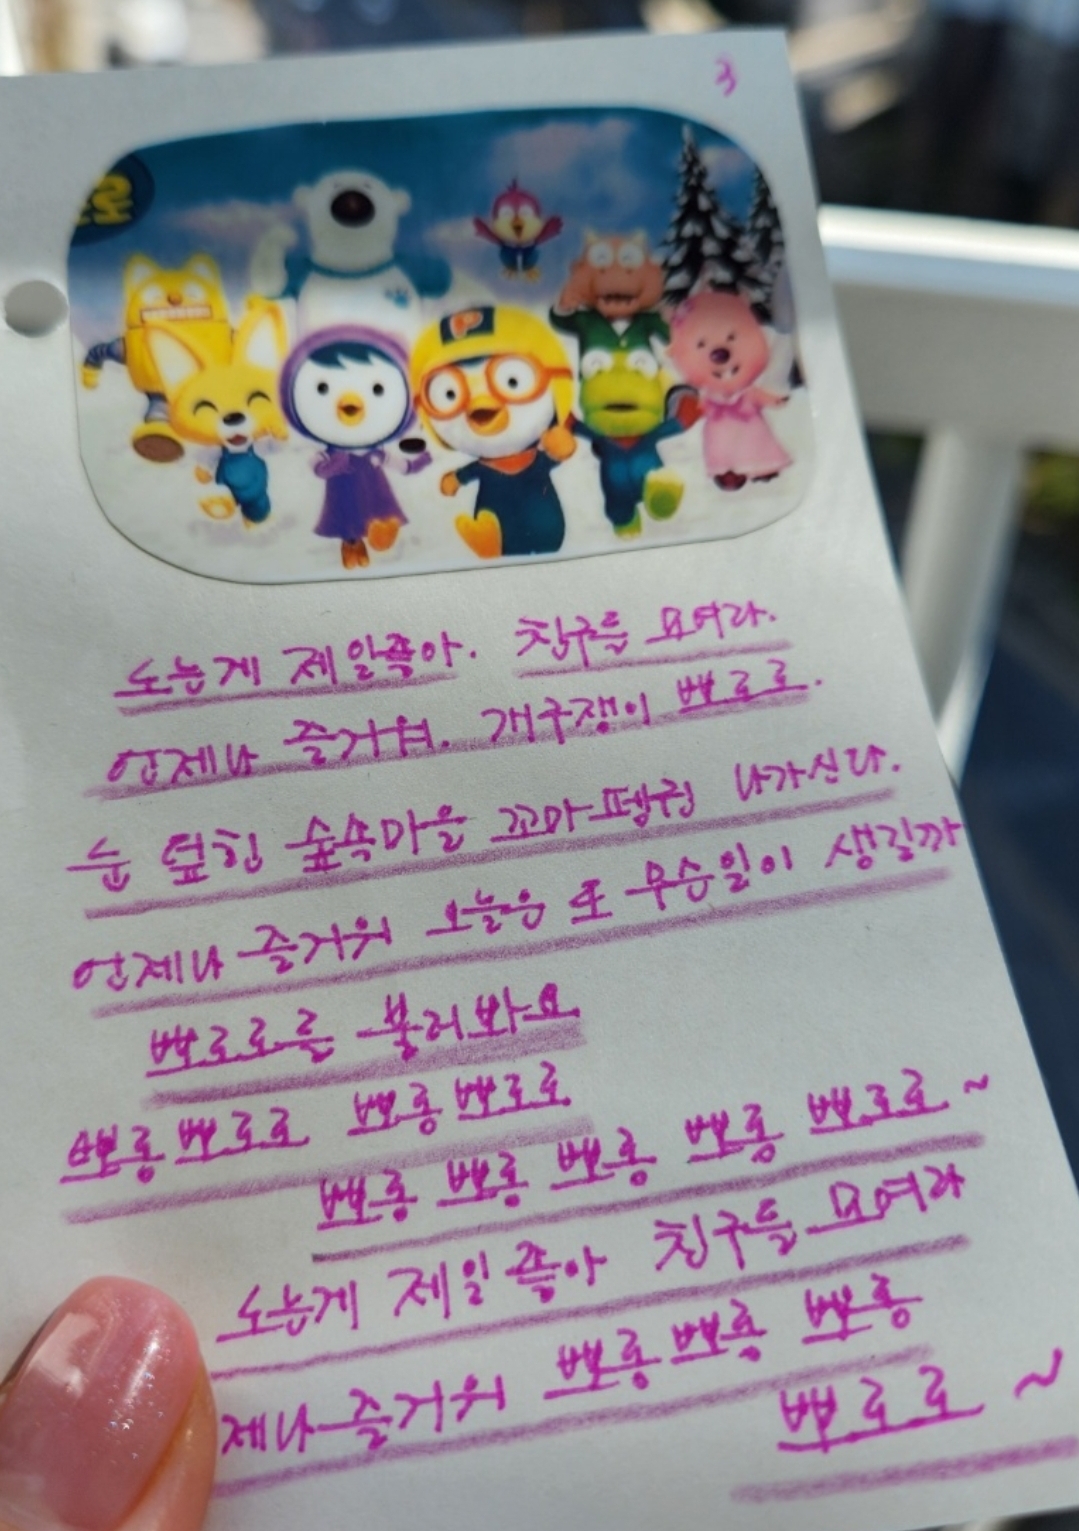 3
노는게 제일좋아. 친구들 모여라.
언제나 즐거워. 개구쟁이 뽀로로.
눈 덮힌 숲속마을 꼬마펭귄 나가신다.
언제나 즐거워 오늘은 또 무슨일이 생길까
뽀로로를 불러봐요
뽀롱뽀로로 뽀롱뽀로로
뽀롱 뽀롱 뽀롱 뽀롱 뽀로로~
노는게 제일 좋아 친구들 모여라
제나 즐거워 뽀롱뽀롱 뽀롱
뽀로로~